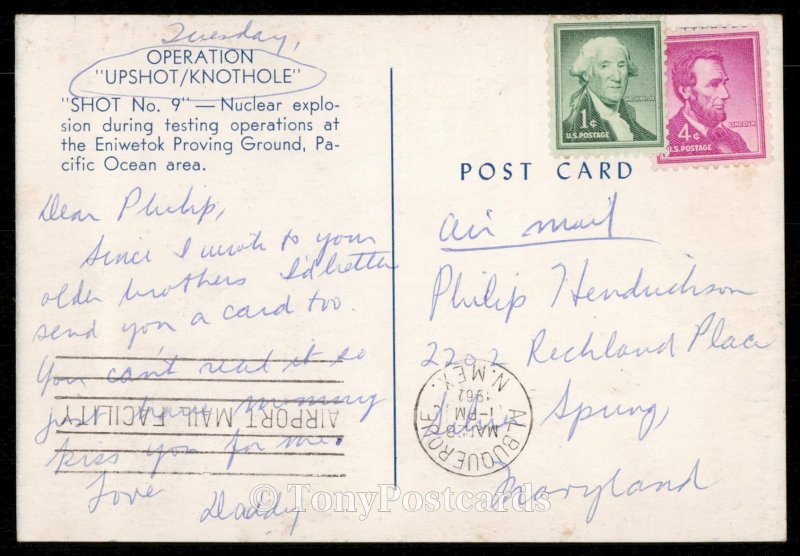 Tuesday,
OPERATION
"UPSHOT/KNOTHOLE"
"SHOT No. 9" — Nuclear explo-
sion during testing operations at
the Eniwetok Proving Ground, Pa-
cific Ocean area.
Dear Philip,
Since I wrote to your
older brothers I'd better
send you a card too.
You can't read it so
just have mommy
kiss you for me.
Love
Daddy
AIRPORT MAIL FACILITY
WASHINGTON
1¢
U.S. POSTAGE
LINCOLN
4¢
U.S. POSTAGE
POST CARD
air mail
Philip Hendrickson
2202 Richland Place
Silver Spring,
Maryland
ALBUQUERQUE
N. MEX.
MAR 28
11-PM
1962
© TonyPostcards